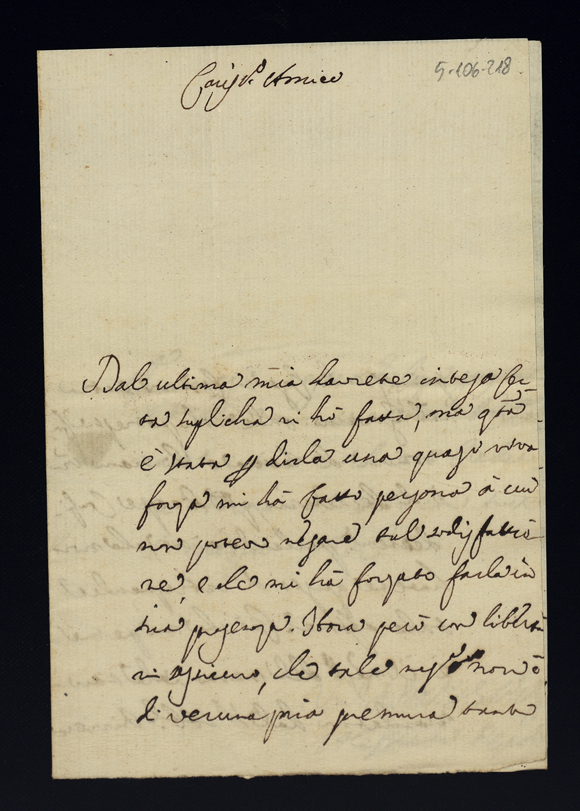 Caris.o Amico
5-106-218
Dal ultima mia havrete inteso cer
ta suplicha vi hò fatta, ma qta
è stata p dirla una quasi viva
forza mi hà fatto persona à cui
non potevo negare tal sodisfattio
ne, e che mi hà forzato farla in
sua presenza. Hora però con libertà
vi assicuro, che tale neg.o non è
di veruna mia premura tanto